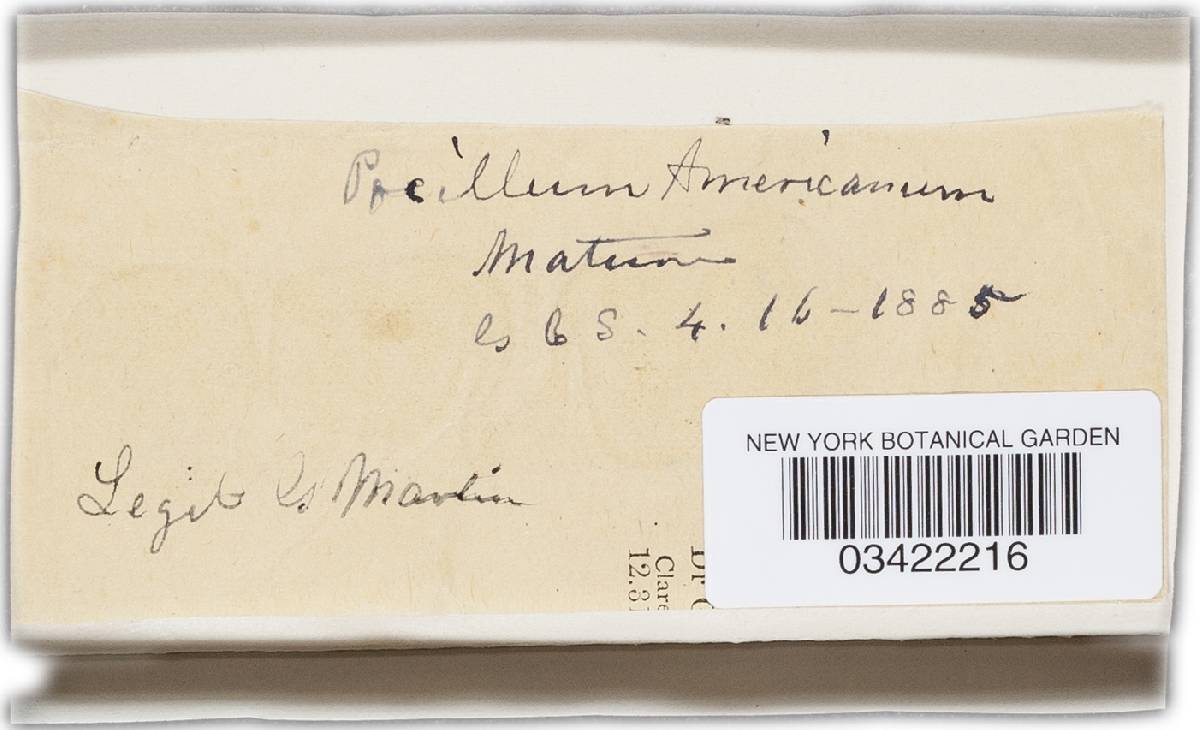 Pocillum Americanum
Mature
S. 4. 16-1885
Legit G Martin
NEW YORK BOTANICAL GARDEN
03422216
Dr
Clare
12.31